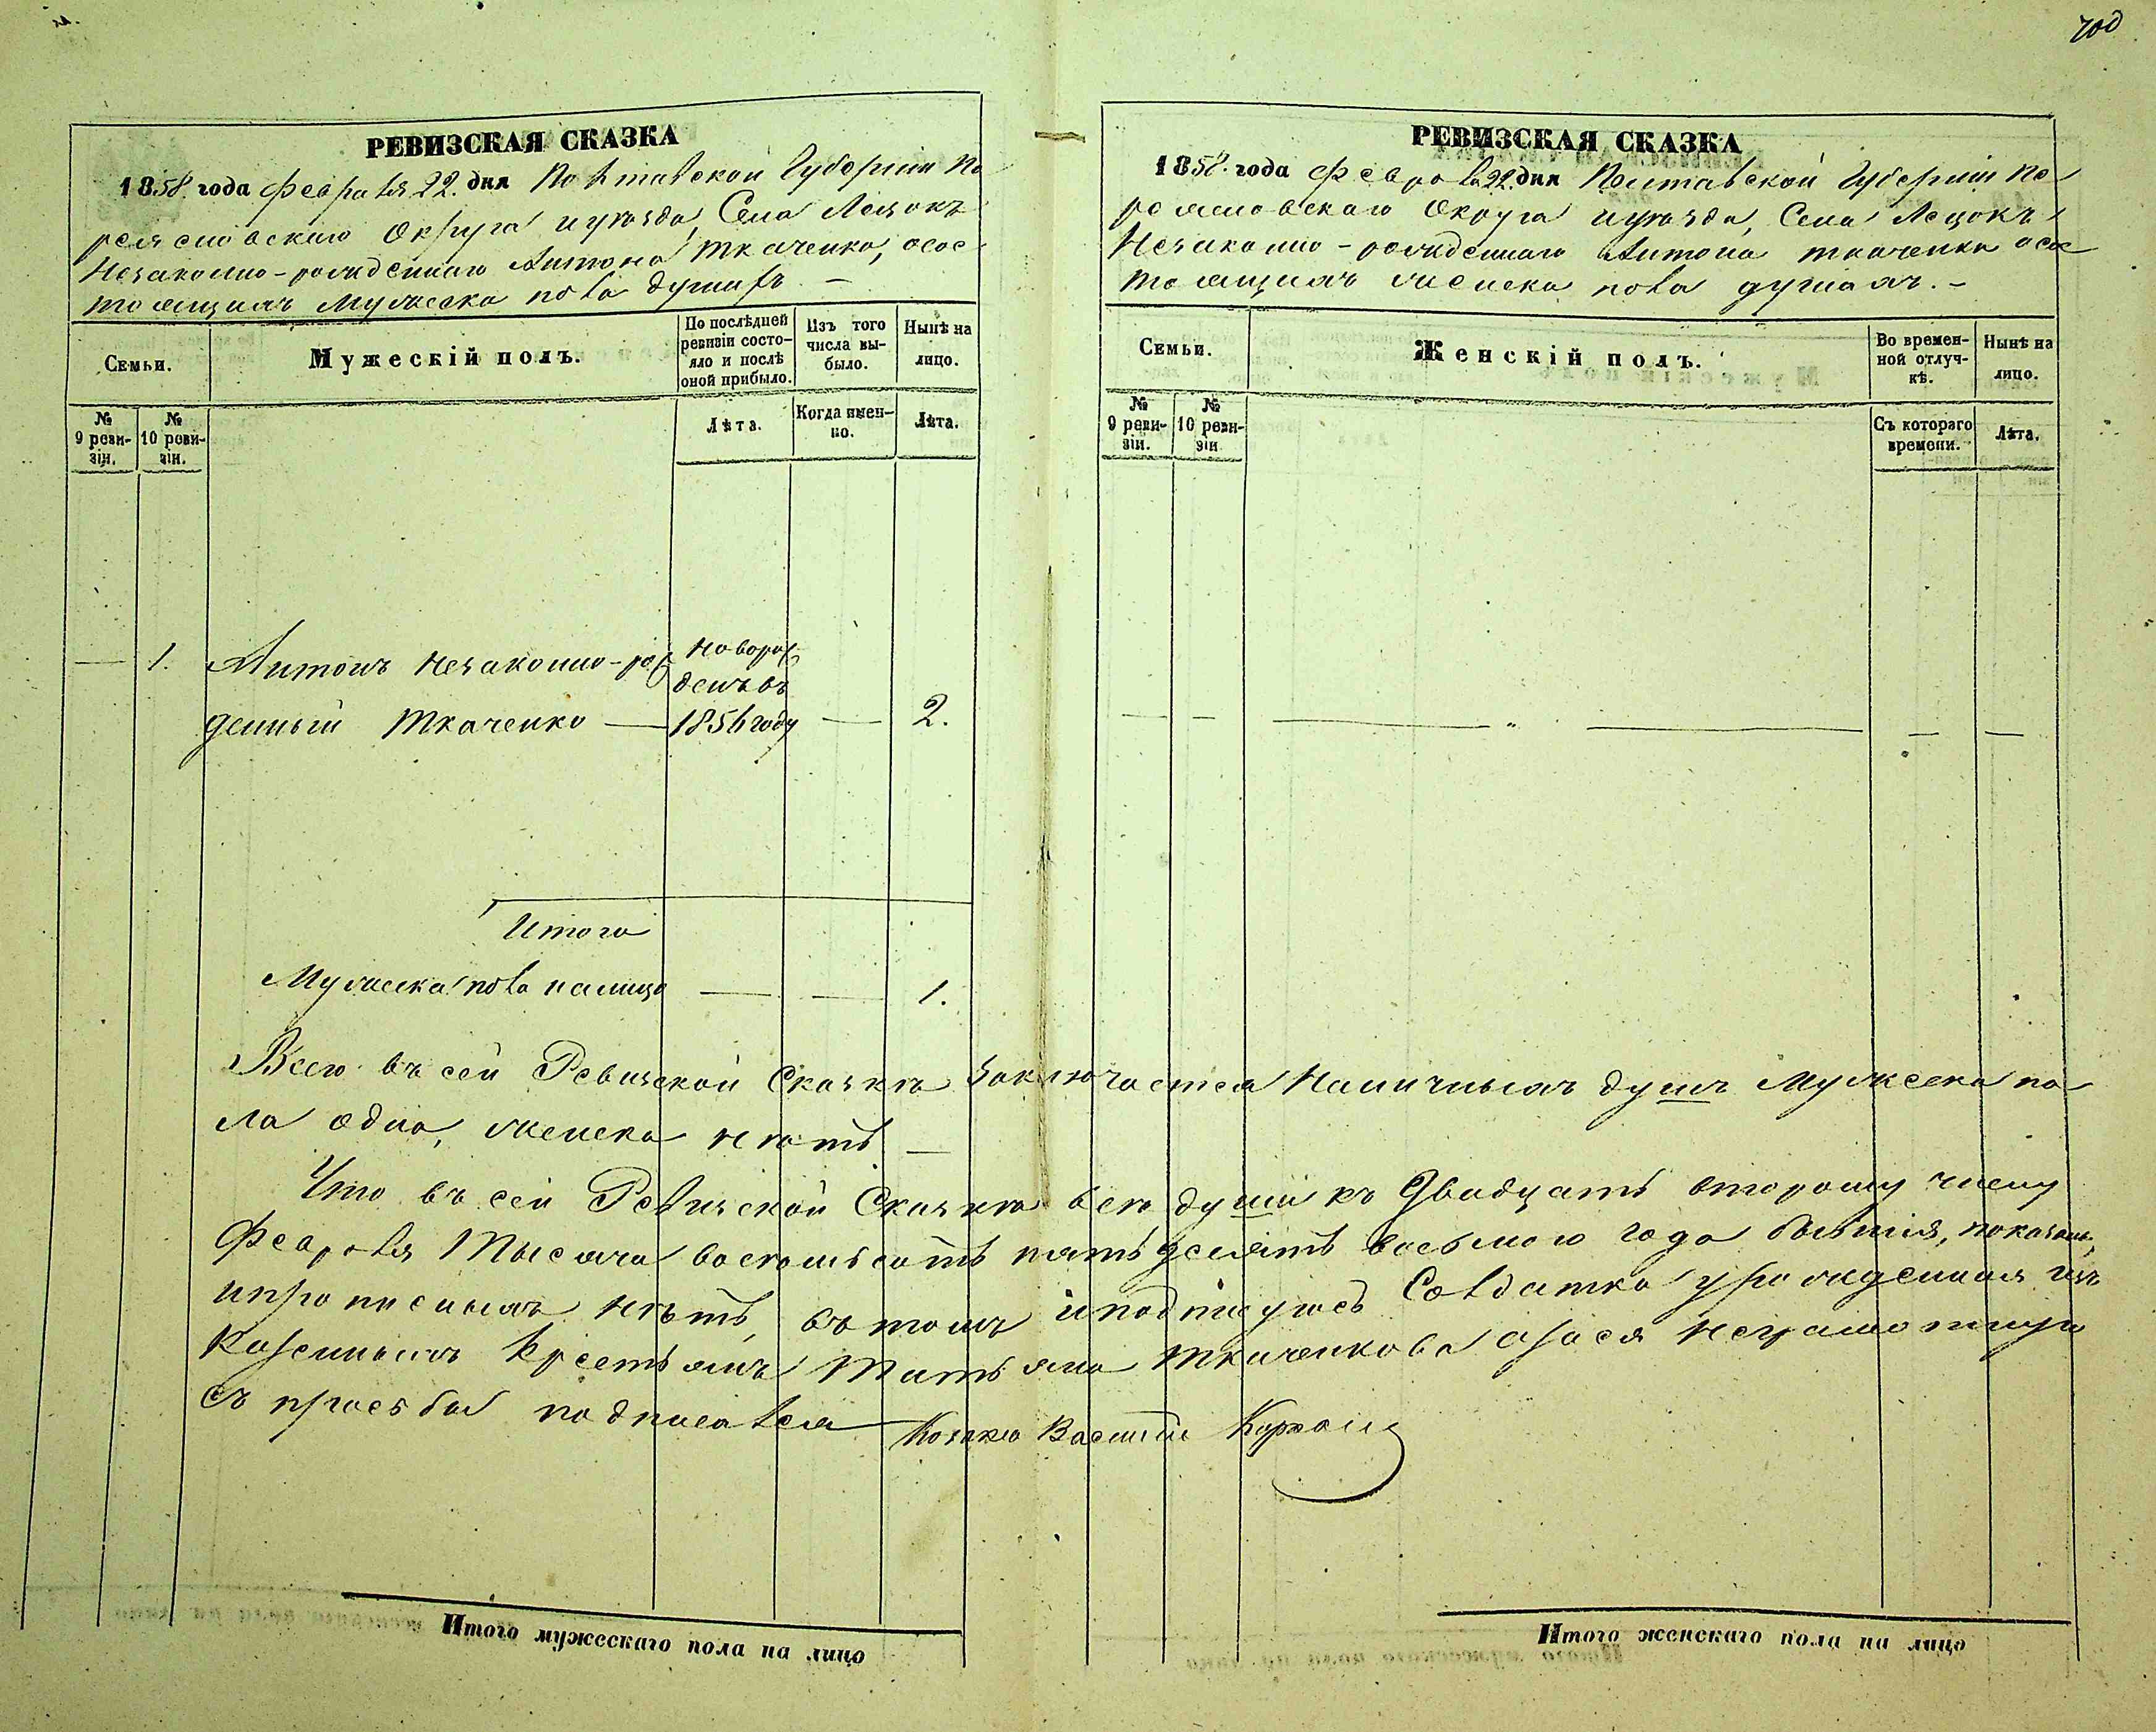 700
РЕВИЗСКАЯ СКАЗКА
1858. года Февраля 22. дня Полтавской Губерніи Пе
реяславскаго Округа и уѣзда, Села Лецокъ
Незаконно-рожденнаго Антона Ткаченко, о сос-
тоящихъ мужеска пола душахъ. –
Семьи.
Мужескій полъ.
По послѣдней
ревизіи состо-
яло и послѣ
оной прибыло.
Изъ того
числа вы-
было.
Нынѣ на
лицо.
№
9 реви-
зіи.
№
10 реви-
зіи.
Лѣта.
Когда имен-
но.
Лѣта.
— 1. Антонъ незаконно-рож новорож
денъ въ
денный Ткаченко — 1856 году — 2.
Итого
Мужеска пола налицо — — 1.
РЕВИЗСКАЯ СКАЗКА
1858. года Февраля 22. дня Полтавской Губерніи Пе
реяславскаго Округа и уѣзда, Села Лецокъ
Незаконно-рожденнаго Антона Ткаченка о сос
тоящихъ женска пола душахъ. –
Семьи.
Женскій полъ.
Во времен-
ной отлуч-
кѣ.
Нынѣ на
лицо.
№
9 реви-
зіи.
№
10 реви-
зіи
Съ котораго
времени.
Лѣта.
— — — „ — — —
Всего въ сей Ревизской Сказкѣ заключается наличныхъ душъ мужеска по
ла одна, женска нѣтъ —
Что въ сей Ревизской Сказкѣ все души къ двадцать второму числу
Февраля тысяча восемьсотъ пятьдесятъ восьмого года бытія, показаны,
и прописныхъ нѣтъ, въ томъ и подпишусь Солдатка урожденная изъ
Казенныхъ крестьянъ Татьяна Ткаченкова а за ся неграмотную
съ просьбы подписался Козакъ Василій
Итого мужескаго пола на лицо
Итого женскаго пола на лицо